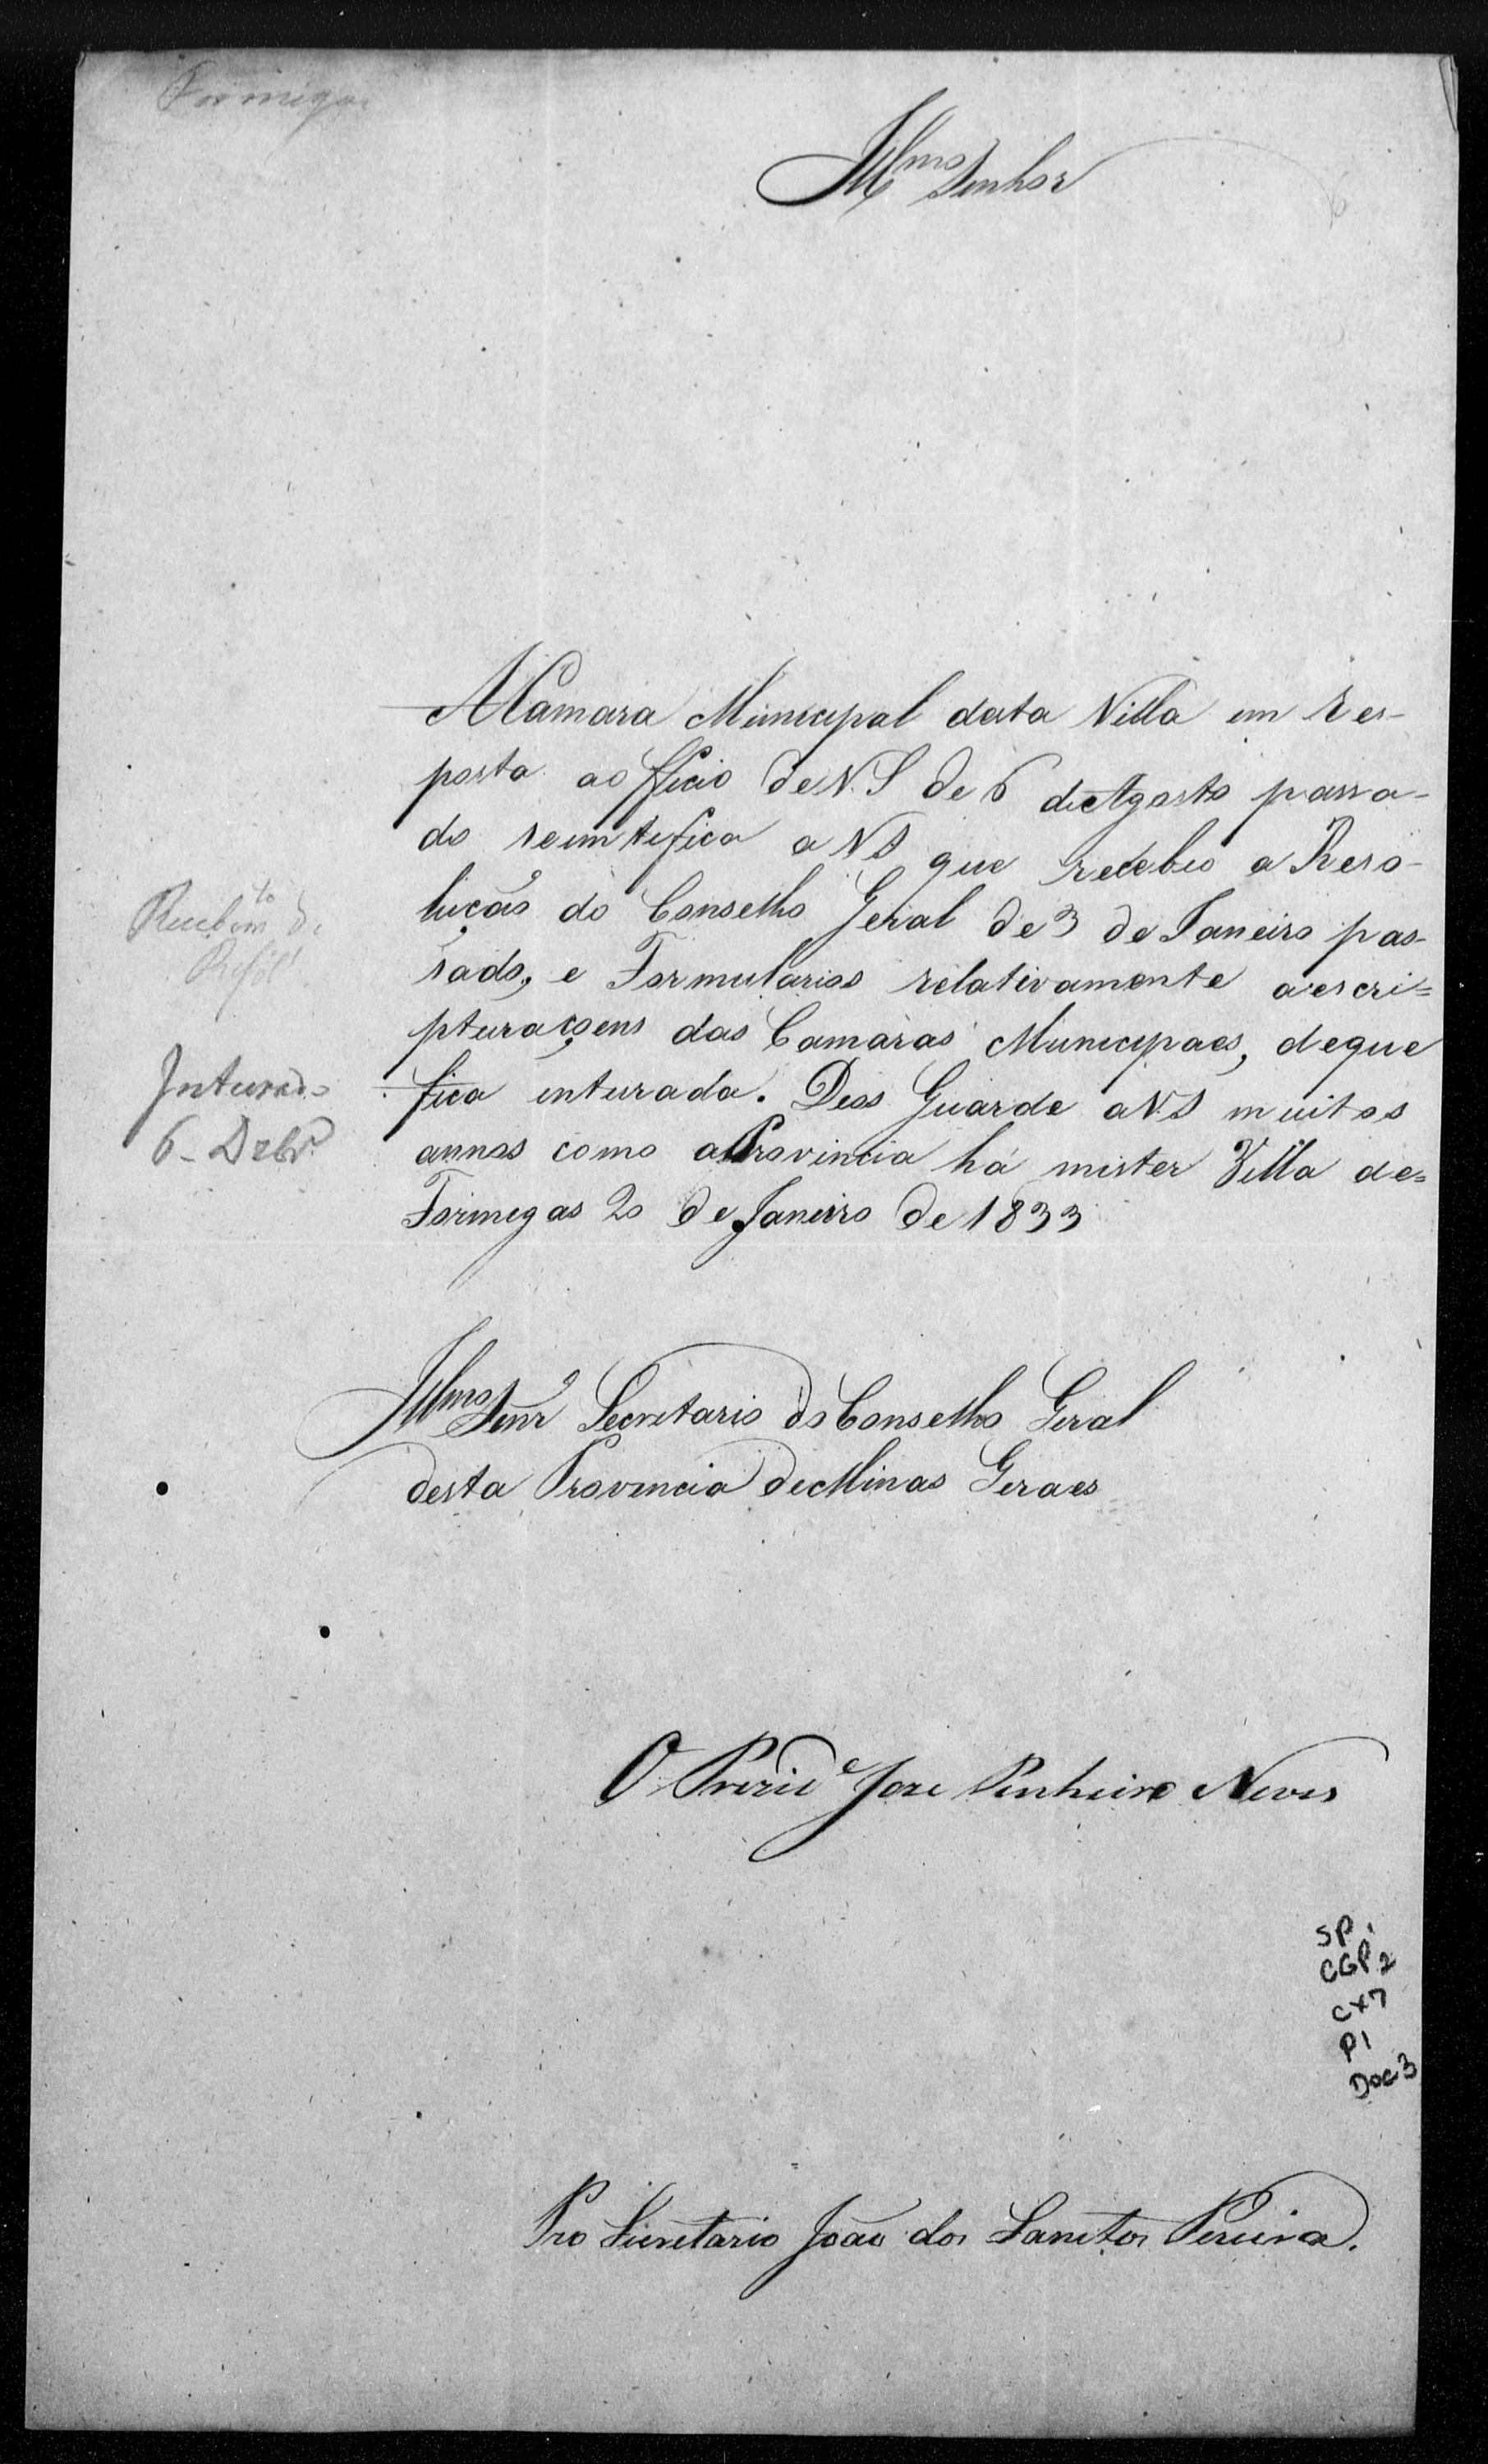 Formiga
Illmo Senhor
A Camara Municipal desta Villa em res-
posta ao fficio de V.S de 6 de Agosto passa-
do scintefica a VS que recebeo a Reso-
lução do Conselho Geral de 3 de Janeiro pas-
sado, e Formularios relativamente a escri=
pturaçoens das Camaras Municipaes, de que
fica enturada. Deos Guarde a VS muitos
annos como a Provincia há mister Villa de=
Formegas 20 de Janeiro de 1833
Recebim.to de
Resol
Inteirado
6 - Dzbr.o
Illmo Senr Secretario do Conselho Geral
desta Provincia de Minas Geraes
O Prezid.e Jose Pinheiro Neves
SP 1
CGP 2
CX7
P1
Doc 3
Pro Secretario João dos Sanctos Pereira.